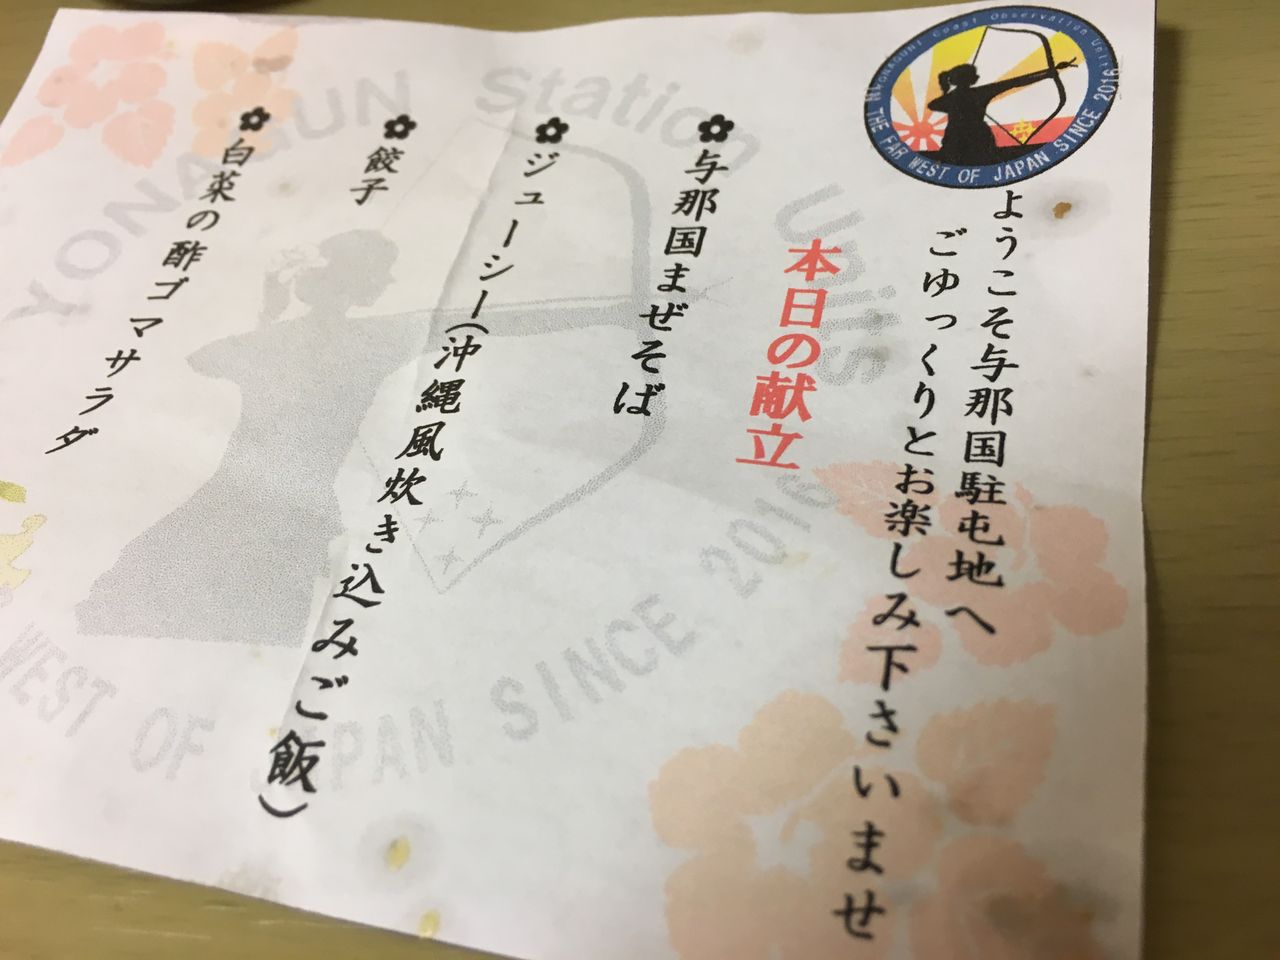 YONAGUNI Coast Observation Unit
THE FAR WEST OF JAPAN SINCE 2016
ようこそ与那国駐屯地へ
ごゆっくりとお楽しみ下さいませ
本日の献立
✿与那国まぜそば
✿ジューシー(沖縄風炊き込みご飯)
✿餃子
✿白菜の酢ゴマサラダ
YONAGUN Station Units
WEST OF JAPAN SINCE 2016